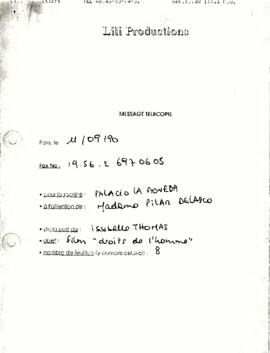 Lili Productions
MESSAGE TELECOPIE
Paris, le 11/09/90
Fax No : 19.56.2 697 06 05
• pour la société : PALACIO LA MONEDA
• à l'attention de : Madame PILAR DELASCO
• de la part de : isabelle THOMAS
• objet : Film "droits de l'homme"
• nombre de feuillets (y compris celui-ci) : 8